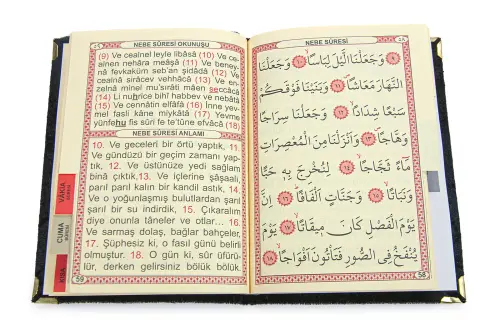 ٥٩
NEBE SÛRESİ OKUNUŞU
(9) Ve cealnel leyle libâsâ (10) Ve ce-
alnen nehâra meâşâ (11) Ve beney-
nâ fevkaküm seb'an şidâdâ (12) Ve
cealnâ sirâcev vehhâcâ (13) Ve en-
zelnâ minel mu'sırâti mâen seccâcâ
(14) Li nuhrice bihî habbev ve nebâtâ
(15) Ve cennâtin elfâfâ (16) İnne yev-
mel fasli kâne mîykâtâ (17) Yevme
yünfehu fis sûri fe te'tûne efvâcâ (18)
NEBE SÛRESİ ANLAMI
10. Ve geceleri bir örtü yaptık, 11.
Ve gündüzü bir geçim zamanı yap-
tık, 12. Ve üstünüze yedi sağlam
binâ çıktık,13. Ve içlerine şâşaali,
parıl parıl kalın bir kandil astık, 14.
Ve o yoğunlaşmış bulutlardan şarıl
şarıl bir su indirdik, 15. Çıkaralım
diye onunla tâneler ve otlar... 16.
Ve sarmaş dolaş, bağlar bahçeler,
17. Şüphesiz ki, o fasıl günü belirli
olmuştur. 18. O gün ki, sûr üfürü-
lür, derken gelirsiniz bölük bölük.
59
VÂKIA
CUMA
KISA
٥٨
NEBE SÛRESİ
﴿٩﴾ وَجَعَلْنَا الَّيْلَ لِبَاسًا ﴿١٠﴾ وَجَعَلْنَا
النَّهَارَ مَعَاشًا ﴿١١﴾ وَبَنَيْنَا فَوْقَكُمْ
سَبْعًا شِدَادًا ﴿١٢﴾ وَجَعَلْنَا سِرَاجًا
وَهَّاجًا ﴿١٣﴾ وَاَنْزَلْنَا مِنَ الْمُعْصِرَاتِ
مَاءً ثَجَّاجًا ﴿١٤﴾ لِنُخْرِجَ بِهِ حَبًّا
وَنَبَاتًا ﴿١٥﴾ وَجَنَّاتٍ اَلْفَافًا ﴿١٦﴾ اِنَّ
يَوْمَ الْفَصْلِ كَانَ مِيقَاتًا ﴿١٧﴾ يَوْمَ
يُنْفَخُ فِي الصُّورِ فَتَأْتُونَ اَفْوَاجًا ﴿١٨﴾
58